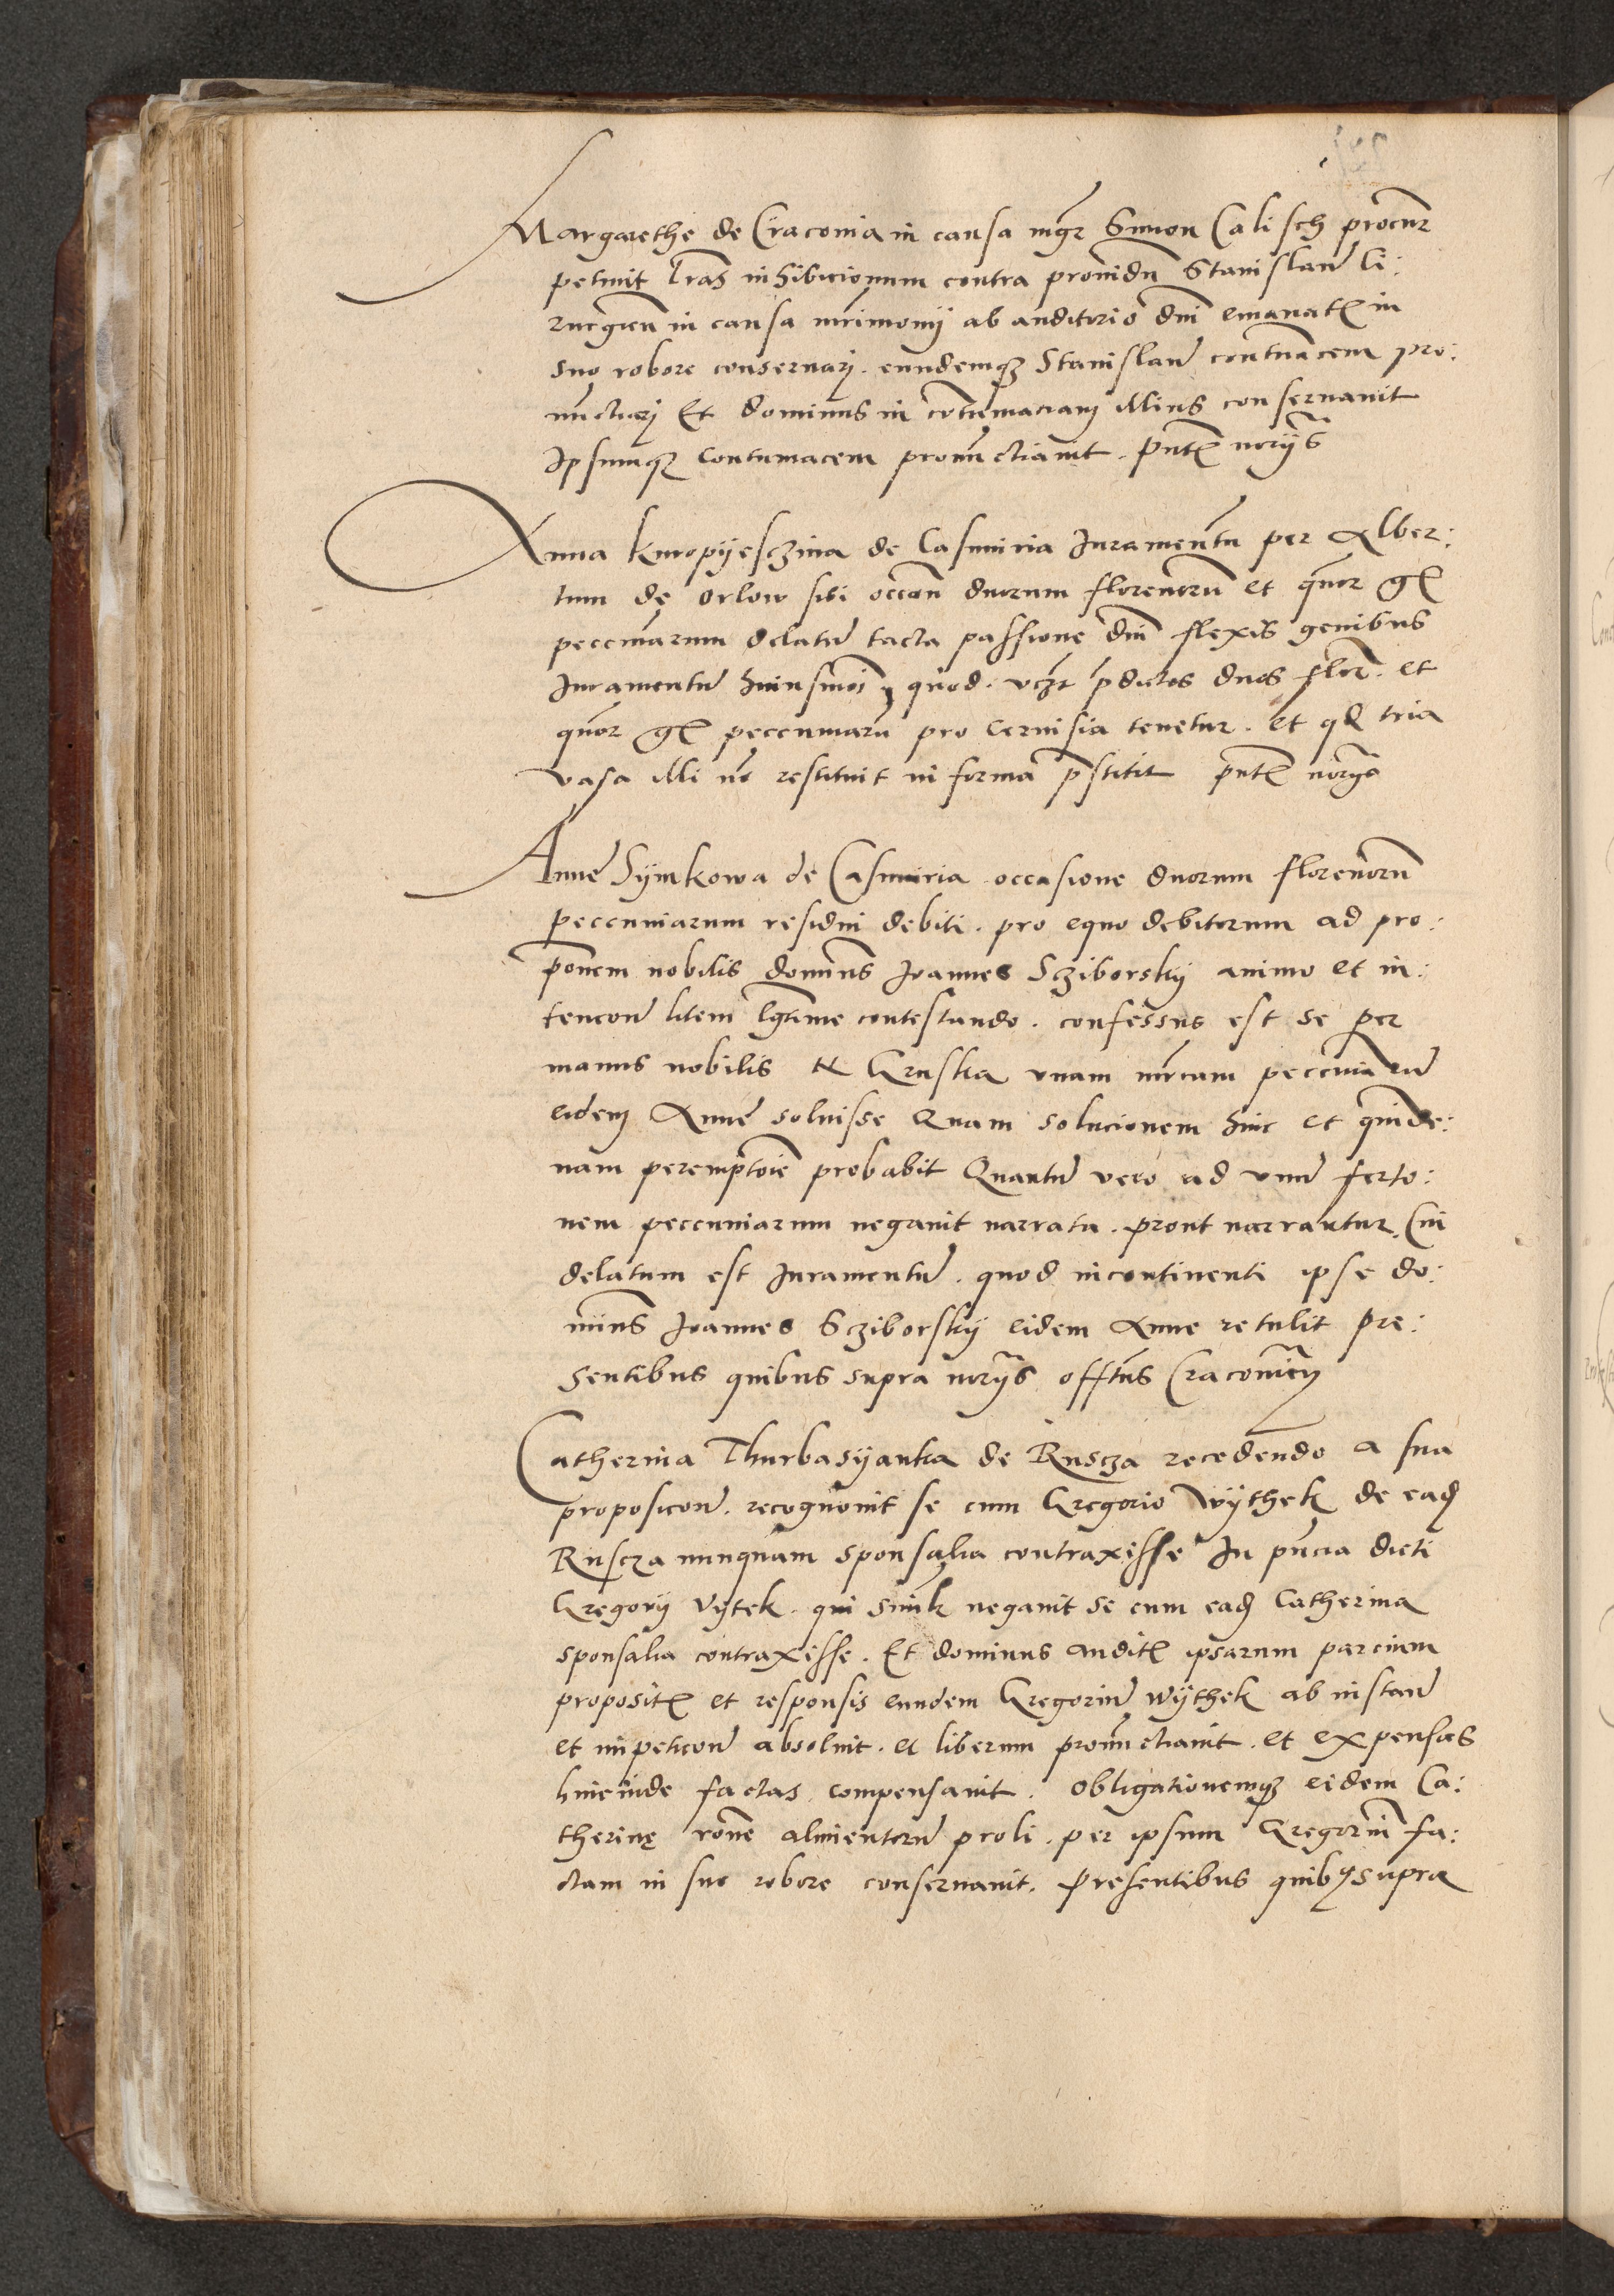 Margarethe de Cracouia in causa mgr Simon Calisch procur
petiuit lras inhibicionum contra prouidu Stanislau Ci:
rurgicu in causa mrimonij ab auditorio dni emanat in
suo robore conseruari. eundemq Stanislau contuacem pro:
nuctiarj Et dominus in cotumaciam illius conseruauit
Ipsumq contumacem pronuctiauit. pnt norijs
Anna kuropijesczina de Casimiria Iuramentu per Alber:
tum de Orlow sibi occon duorum florenoru et quor g
peccuniarum delatu tacta passione dni flexis genibus
Iuramentu huiusmoi quod. vczt pdictos duos flor. et
quor g peccuniaru pro ceruisia tenetur. et qd tria
vasa illi no restituit in forma pstitit pnt norijs
Anne Sijmkowa de Casimiria occasione duorum florenoru
peccuniarum residui debiti. pro equo debitorum ad pro:
ponem nobilis dominus Joannes Scziborskij animo et in:
tencon litem lgtime contestando. confessus est se per
manus nobilis N Gruska vnam mrcam peccuniaru
eidem Anne soluisse Quam solucionem hinc et quinde:
nam peremptorie probabit Quantu vero ad vnu ferto:
nem peccuniarum negauit narrata. prout narrantur. Cui
delatum est Iuramentu. quod incontinenti ipse do:
minus Joannes Scziborskij eidem Anne retulit pre:
sentibus quibus supra norijs offtus Cracouien
Catherina Thurbasijanka de Ruscza recedendo a sua
proposicon. recognouit se cum Gregorio Wijthek de ead
Ruscza nunquam sponsalia contraxisse In pncia dicti
Gregorij Vijtek. qui simlr negauit se cum ead Catherina
sponsalia contraxisse. Et dominus audit ipsarum parcium
proposit et responsis eundem Gregoriu Wijthek ab instan
et impeticon absoluit. et liberum pronuctiauit. et expensas
hincinde factas compensauit. Obligationemq eidem Ca:
therinę rone alimentoru proli. per ipsum Gregoriu fa:
ctam in suo robore conseruauit. Presentibus quibus supra